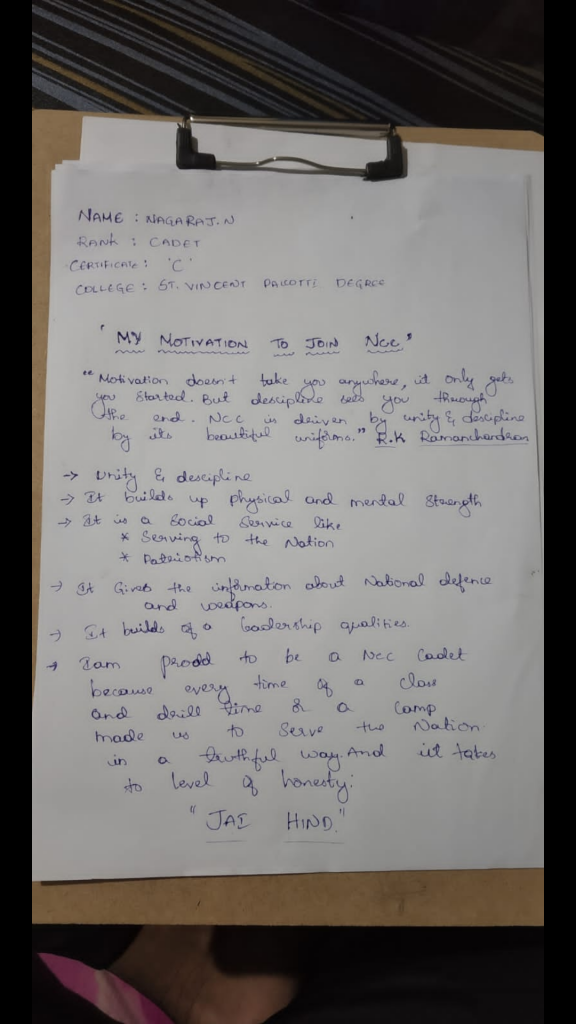 NAME : NAGARAJ.N
RANK : CADET
CERTIFICATE : 'C'
COLLEGE : ST. VINCENT PALLOTTI DEGREE
"MY MOTIVATION TO JOIN NCC"
"Motivation doesn't take you anywhere, it only gets
you started. But descipline sees you through
the end. NCC is driven by unity & descipline
by its beautiful uniforms." R.K Ramanchandran
→ Unity & descipline
→ It builds up physical and mental strength
→ It is a Social Service like
* Serving to the Nation
* Patriotism
→ It Gives the information about National defence
and weapons.
→ It builds of a leadership qualities.
→ I am prodd to be a Ncc Cadet
because every time of a class
and drill time & a camp
made us to Serve the Nation
in a truthful way. And it takes
to level of honesty:
"JAI HIND."